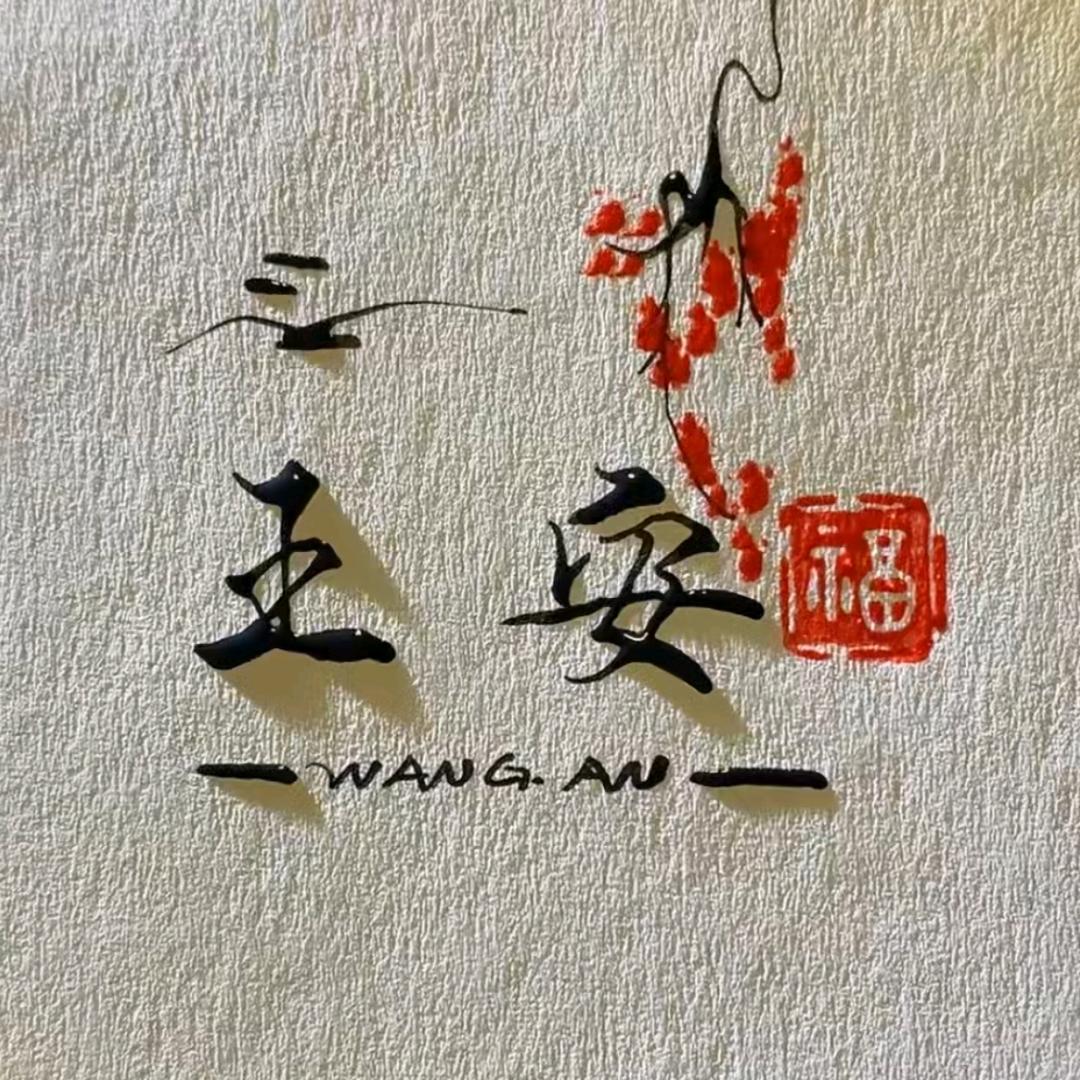 王安
福
— WANG. AN —